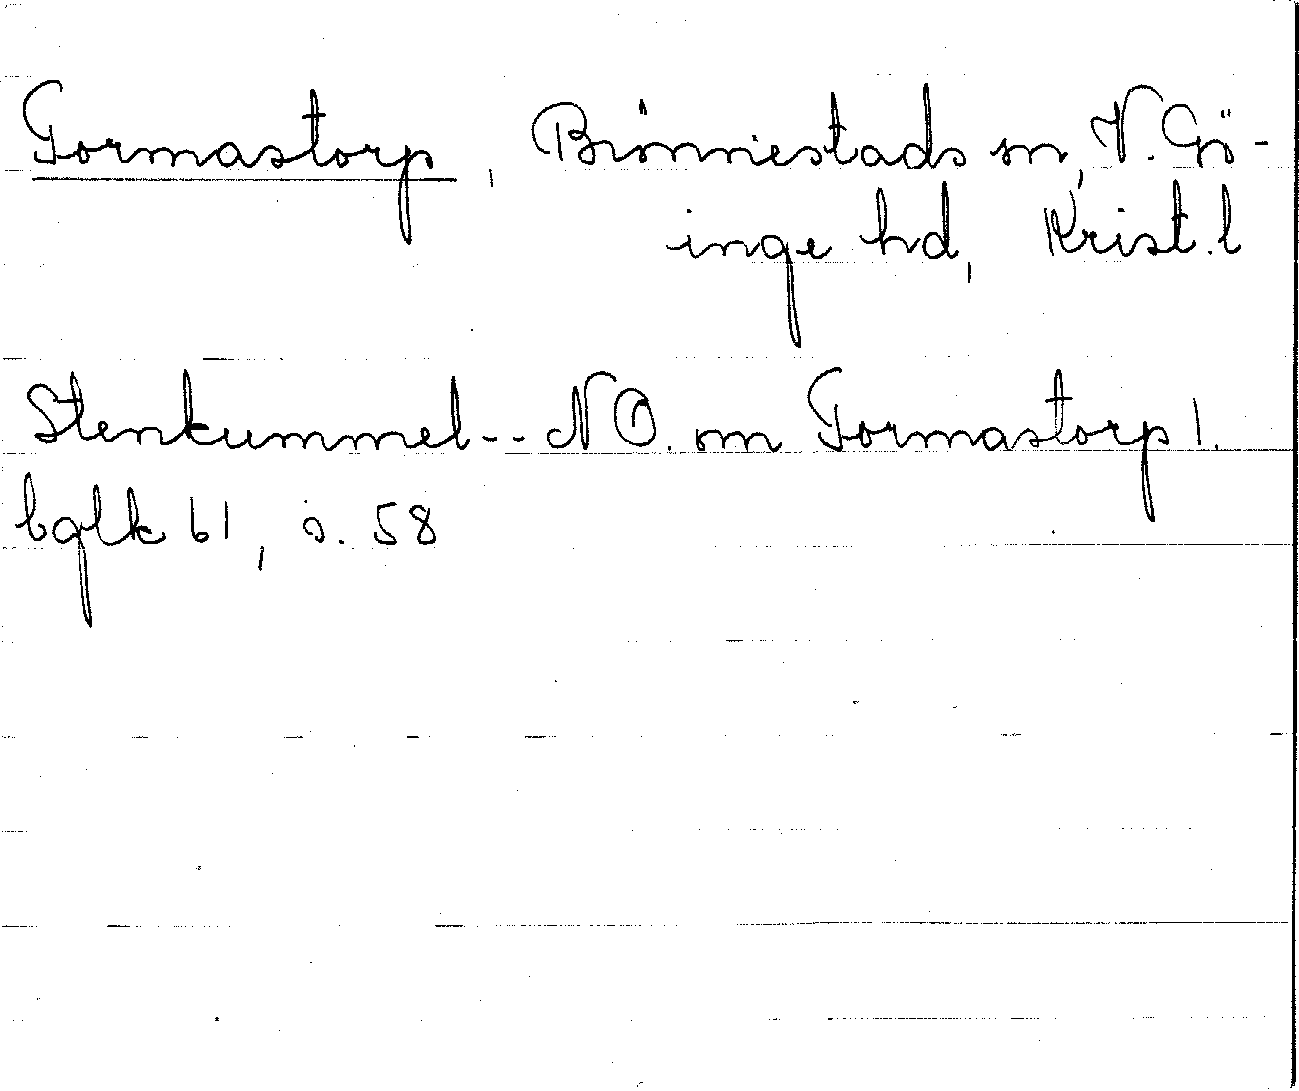 Tormastorp, Brönnestads sn, V. Gö-
inge hd, Krist. l
Stenkummel -- NO. om Tormastorp 1.
bglk 61, s. 58